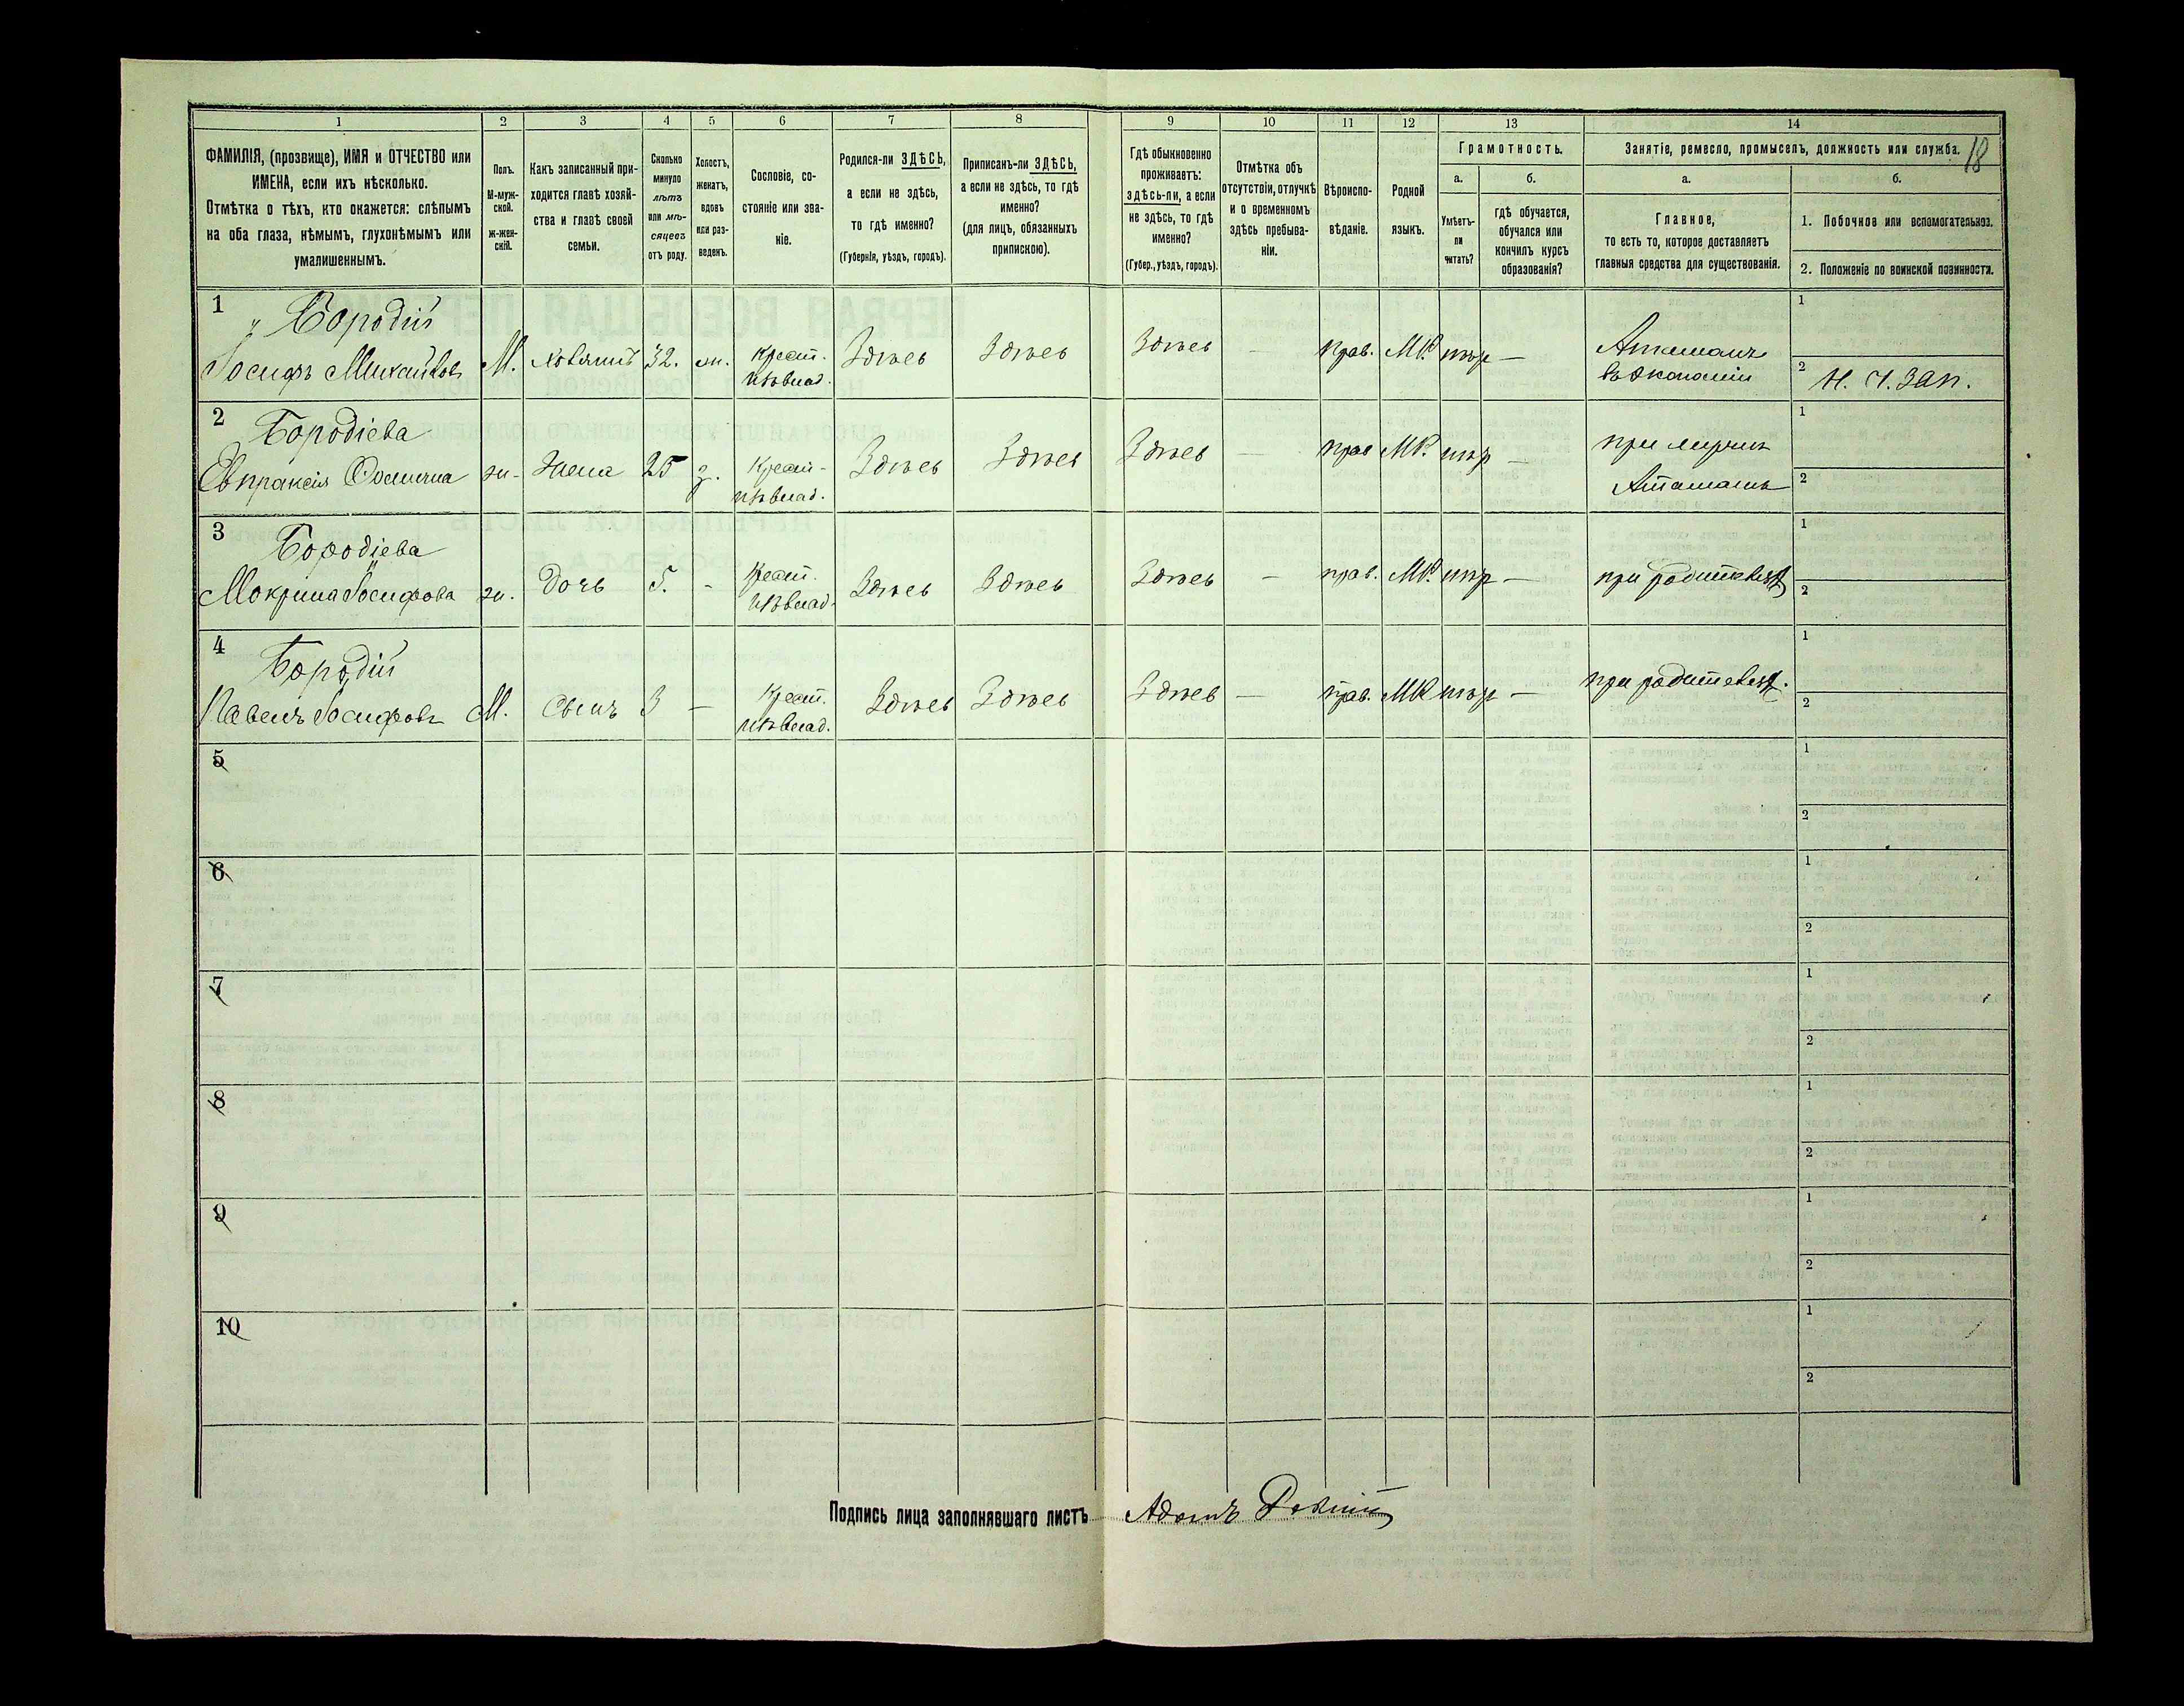 1 2 3 4 5 6 7 8 9 10 11 12 13 14
18
ФАМИЛІЯ, (прозвище), ИМЯ и ОТЧЕСТВО или
ИМЕНА, если ихъ нѣсколько.
Отмѣтка о тѣхъ, кто окажется: слѣпымъ
на оба глаза, нѣмымъ, глухонѣмымъ или
умалишеннымъ.
Полъ.
М-муж-
ской.
Ж-жен-
скій.
Какъ записанный при-
ходится главѣ хозяй-
ства и главѣ своей
семьи.
Сколько
минуло
лѣтъ
или мѣ-
сяцевъ
отъ роду.
Холостъ,
женатъ,
вдовъ
или раз-
веденъ.
Сословіе, со-
стояніе или зва-
ніе.
Родился-ли ЗДѢСЬ,
а если не здѣсь,
то гдѣ именно?
(Губернія, уѣздъ, городъ).
Приписанъ-ли ЗДѢСЬ,
а если не здѣсь, то гдѣ
именно?
(для лицъ, обязанныхъ
припискою).
Гдѣ обыкновенно
проживаетъ:
здѣсь-ли, а если
не здѣсь, то гдѣ
именно?
(Губер., уѣздъ, городъ).
Отмѣтка объ
отсутствіи, отлучкѣ
и о временномъ
здѣсь пребыва-
ніи.
Вѣроиспо-
вѣданіе.
Родной
языкъ.
Грамотность.
а.
Умѣетъ-
ли
читать?
б.
гдѣ обучается,
обучался или
кончилъ курсъ
образованія?
Занятіе, ремесло, промыселъ, должность или служба.
а.
Главное,
то есть то, которое доставляетъ
главныя средства для существованія.
б.
1. Побочное или вспомогательное.
2. Положеніе по воинской повинности.
1
Бородій
Іосифъ Михайловъ М. 32. ж. крест. Здѣсь Здѣсь Здѣсь — прав. МР. — Атаманъ
въ экономіи
1
2 Н. Ч. Зап.
2
Бородіева
Евпраксія Фоминична ж. Жена 25 з. крест- Здѣсь Здѣсь Здѣсь — прав МР. — при мужѣ
Атаманѣ
1
2
3
Бородіева
Мокрина Іосифова ж. Дочь 5. - крест. Здѣсь Здѣсь Здѣсь — прав. МР. — при родителяхъ
1
2
4
Бородій
Павелъ Іосифовъ М. Сынъ 3 — крест. Здѣсь Здѣсь Здѣсь — прав. МР — при родителяхъ.
1
2
5
1
2
6
1
2
7
1
2
8
1
2
9
1
2
10
1
2
Подпись лица заполнявшаго листъ Адамъ